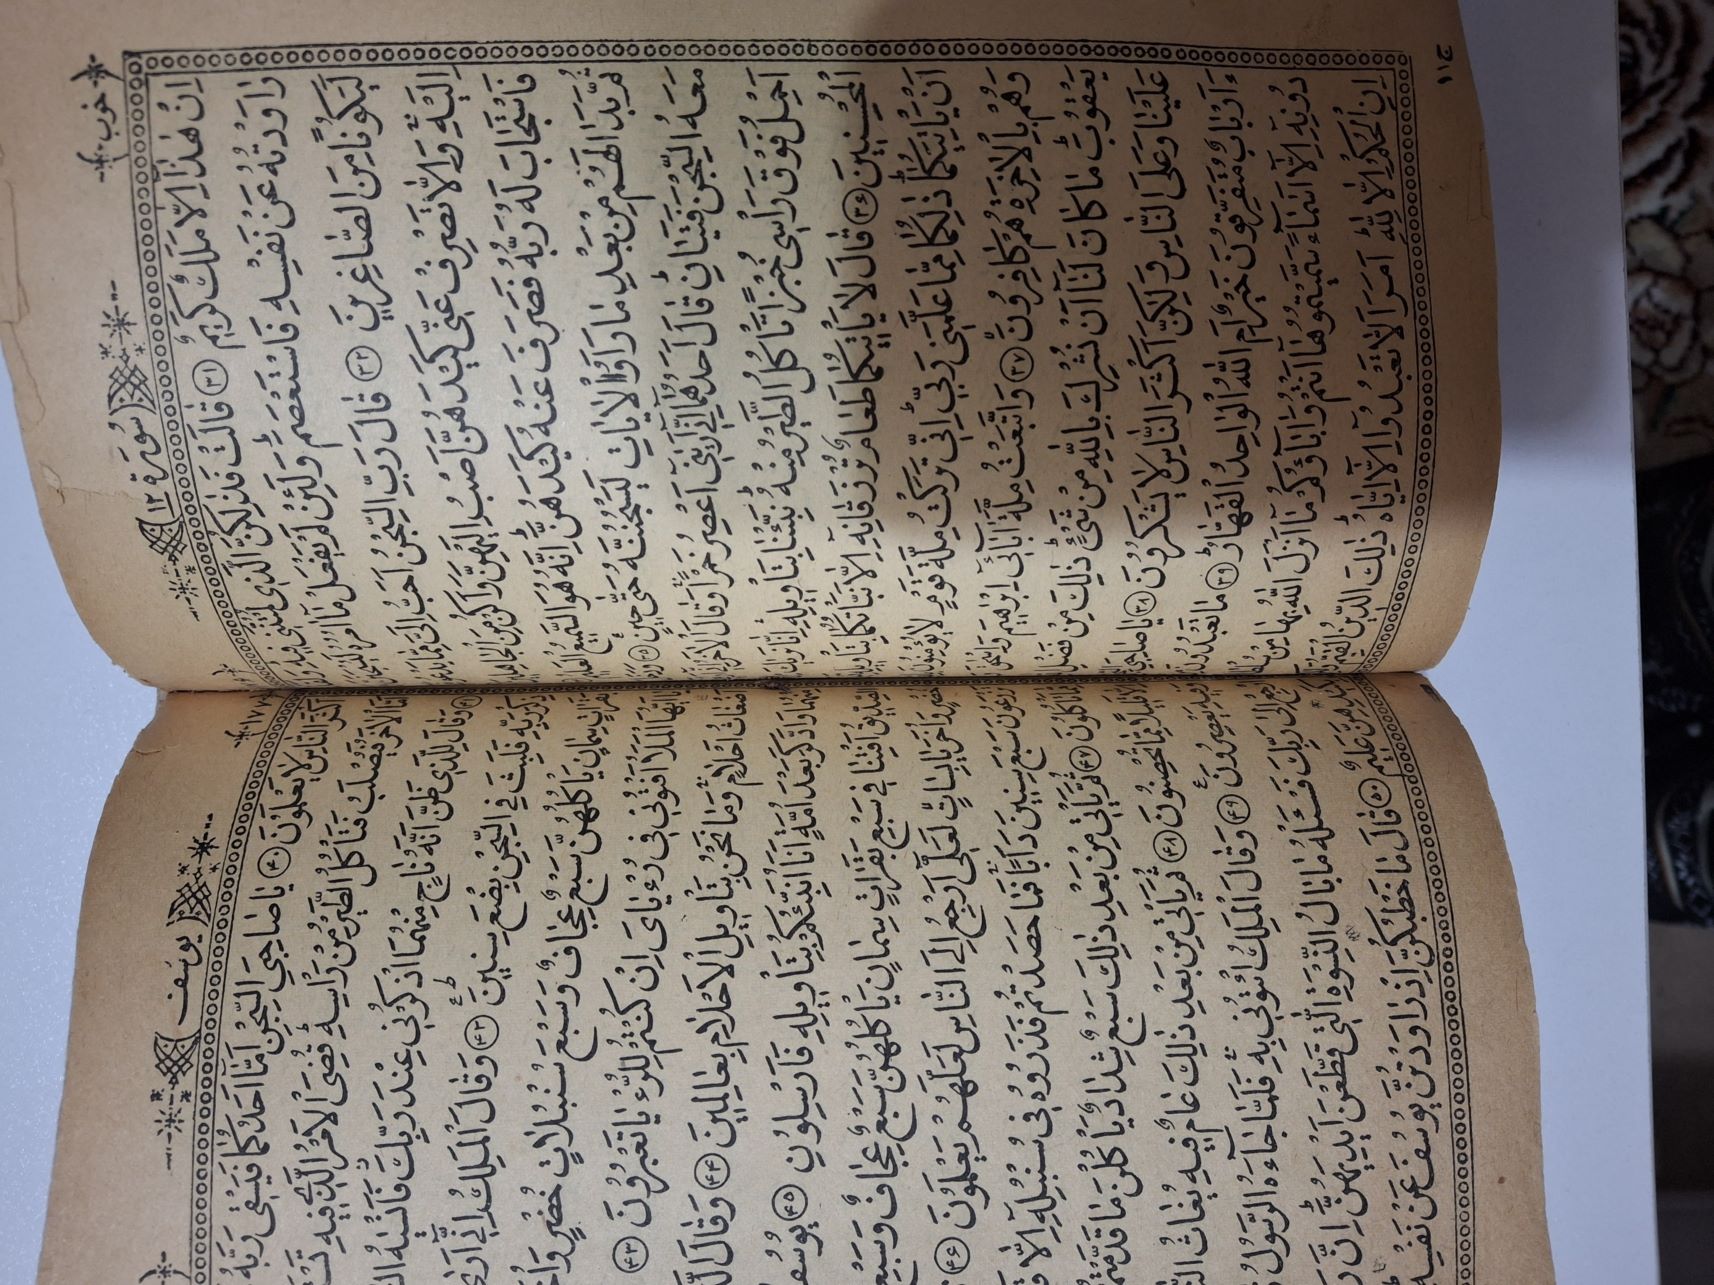 خوب
سورة ١٢
ج ١٢
اِنْ هٰذٰا اِلّٰا مَلَكٌ كَرِيمٌ ٣١ قٰالَتْ فَذٰلِكُنَّ الَّذِى لُمْتُنَّنِى فِيهِ
رٰاوَدْتُهُ عَنْ نَفْسِهِ فَاسْتَعْصَمَ وَلَئِنْ لَمْ يَفْعَلْ مٰا آمُرُهُ لَيُسْجَنَنَّ
لَيَكُونًا مِنَ الصّٰاغِرِينَ ٣٢ قٰالَ رَبِّ السِّجْنُ اَحَبُّ اِلَىَّ مِمّٰا
اِلَيْهِ وَاِلّٰا تَصْرِفْ عَنِّى كَيْدَهُنَّ اَصْبُ اِلَيْهِنَّ وَاَكُنْ مِنَ الْجٰاهِلِينَ
فَاسْتَجٰابَ لَهُ رَبُّهُ فَصَرَفَ عَنْهُ كَيْدَهُنَّ اِنَّهُ هُوَ السَّمِيعُ الْعَلِيمُ
ثُمَّ بَدٰا لَهُمْ مِنْ بَعْدِ مٰا رَاَوُا الْاٰيٰاتِ لَيَسْجُنُنَّهُ حَتّٰى حِينٍ ٣٥
مَعَهُ السِّجْنَ فَتَيٰانِ قٰالَ اَحَدُهُمٰا اِنِّى اَرٰينِى اَعْصِرُ خَمْرًا وَقٰالَ الْاٰخَرُ
اَحْمِلُ فَوْقَ رَاْسِى خُبْزًا تَاْكُلُ الطَّيْرُ مِنْهُ نَبِّئْنٰا بِتَاْوِيلِهِ اِنّٰا نَرٰيكَ
الْمُحْسِنِينَ ٣٦ قٰالَ لٰا يَاْتِيكُمٰا طَعٰامٌ تُرْزَقٰانِهِ اِلّٰا نَبَّاْتُكُمٰا بِتَاْوِيلِهِ
اَنْ يَاْتِيَكُمٰا ذٰلِكُمٰا مِمّٰا عَلَّمَنِى رَبِّى اِنِّى تَرَكْتُ مِلَّةَ قَوْمٍ لٰا يُؤْمِنُونَ
وَهُمْ بِالْاٰخِرَةِ هُمْ كٰافِرُونَ ٣٧ وَاتَّبَعْتُ مِلَّةَ اٰبٰائِى اِبْرٰاهِيمَ وَاِسْحٰقَ
يَعْقُوبَ مٰا كٰانَ لَنٰا اَنْ نُشْرِكَ بِاللّٰهِ مِنْ شَىْءٍ ذٰلِكَ مِنْ فَضْلِ
عَلَيْنٰا وَعَلَى النّٰاسِ وَلٰكِنَّ اَكْثَرَ النّٰاسِ لٰا يَشْكُرُونَ ٣٨ يٰا صٰاحِبَىِ
ءَاَرْبٰابٌ مُتَفَرِّقُونَ خَيْرٌ اَمِ اللّٰهُ الْوٰاحِدُ الْقَهّٰارُ ٣٩ مٰا تَعْبُدُونَ
دُونِهِ اِلّٰا اَسْمٰاءً سَمَّيْتُمُوهٰا اَنْتُمْ وَاٰبٰاؤُكُمْ مٰا اَنْزَلَ اللّٰهُ بِهٰا مِنْ
اِنِ الْحُكْمُ اِلّٰا لِلّٰهِ اَمَرَ اَلّٰا تَعْبُدُوا اِلّٰا اِيّٰاهُ ذٰلِكَ الدِّينُ الْقَيِّمُ
يوسف
اَكْثَرَ النّٰاسِ لٰا يَعْلَمُونَ ٤٠ يٰا صٰاحِبَىِ السِّجْنِ اَمّٰا اَحَدُكُمٰا فَيَسْقِى رَبَّهُ
الْاٰخَرُ فَيُصْلَبُ فَتَاْكُلُ الطَّيْرُ مِنْ رَاْسِهِ قُضِىَ الْاَمْرُ الَّذِى فِيهِ
٤١ وَقٰالَ لِلَّذِى ظَنَّ اَنَّهُ نٰاجٍ مِنْهُمَا اذْكُرْنِى عِنْدَ رَبِّكَ فَاَنْسٰيهُ
ذِكْرَ رَبِّهِ فَلَبِثَ فِى السِّجْنِ بِضْعَ سِنِينَ ٤٢ وَقٰالَ الْمَلِكُ اِنِّى
بَقَرٰاتٍ سِمٰانٍ يَاْكُلُهُنَّ سَبْعٌ عِجٰافٌ وَسَبْعَ سُنْبُلٰاتٍ خُضْرٍ
اَيُّهَا الْمَلَاُ اَفْتُونِى فِى رُءْيٰاىَ اِنْ كُنْتُمْ لِلرُّءْيٰا تَعْبُرُونَ ٤٣
اَضْغٰاثُ اَحْلٰامٍ وَمٰا نَحْنُ بِتَاْوِيلِ الْاَحْلٰامِ بِعٰالِمِينَ ٤٤ وَقٰالَ
مِنْهُمٰا وَادَّكَرَ بَعْدَ اُمَّةٍ اَنَا اُنَبِّئُكُمْ بِتَاْوِيلِهِ فَاَرْسِلُونِ ٤٥
الصِّدِّيقُ اَفْتِنٰا فِى سَبْعِ بَقَرٰاتٍ سِمٰانٍ يَاْكُلُهُنَّ سَبْعٌ عِجٰافٌ وَسَبْعِ
خُضْرٍ وَاُخَرَ يٰابِسٰاتٍ لَعَلِّى اَرْجِعُ اِلَى النّٰاسِ لَعَلَّهُمْ يَعْلَمُونَ ٤٦
تَزْرَعُونَ سَبْعَ سِنِينَ دَاَبًا فَمٰا حَصَدْتُمْ فَذَرُوهُ فِى سُنْبُلِهِ اِلّٰا
تَاْكُلُونَ ٤٧ ثُمَّ يَاْتِى مِنْ بَعْدِ ذٰلِكَ سَبْعٌ شِدٰادٌ يَاْكُلْنَ مٰا قَدَّمْتُمْ
قَلِيلًا مِمّٰا تُحْصِنُونَ ٤٨ ثُمَّ يَاْتِى مِنْ بَعْدِ ذٰلِكَ عٰامٌ فِيهِ يُغٰاثُ
وَفِيهِ يَعْصِرُونَ ٤٩ وَقٰالَ الْمَلِكُ ائْتُونِى بِهِ فَلَمّٰا جٰاءَهُ الرَّسُولُ
ارْجِعْ اِلٰى رَبِّكَ فَسْئَلْهُ مٰا بٰالُ النِّسْوَةِ اللّٰاتِى قَطَّعْنَ اَيْدِيَهُنَّ اِنَّ
بِكَيْدِهِنَّ عَلِيمٌ ٥٠ قٰالَ مٰا خَطْبُكُنَّ اِذْ رٰاوَدْتُنَّ يُوسُفَ عَنْ نَفْسِهِ